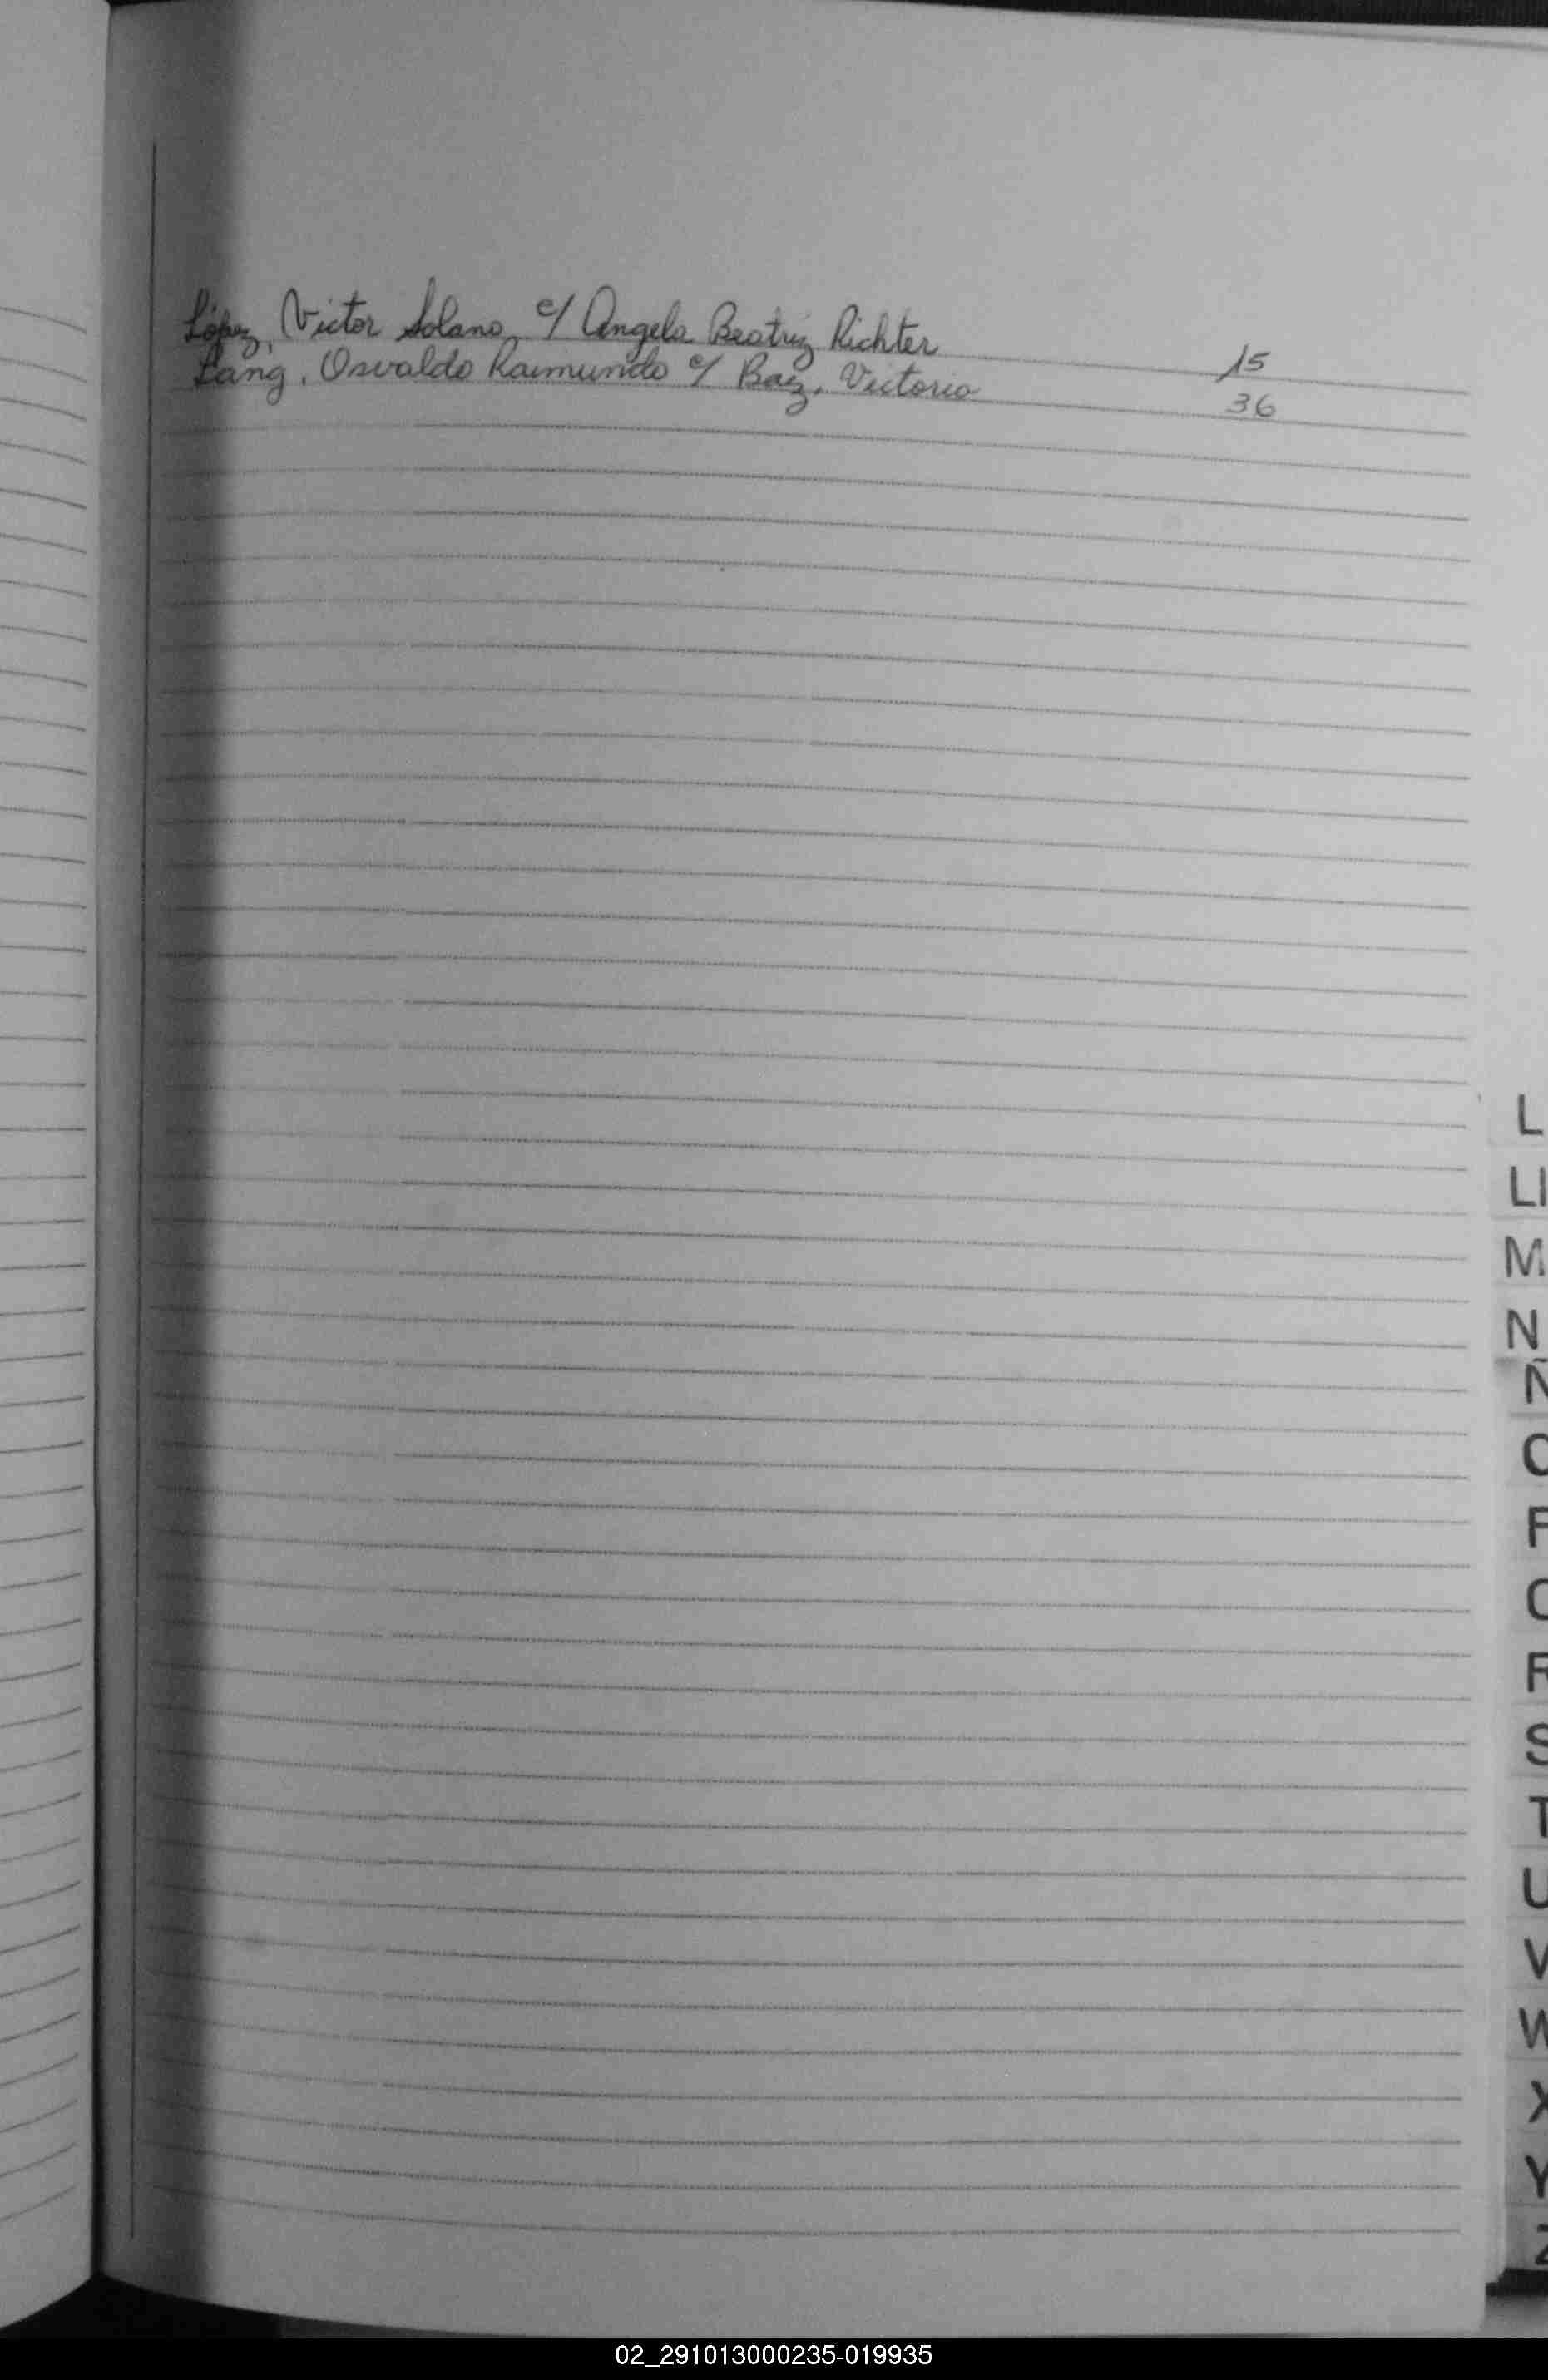 López, Victor Solano c/ Angela Beatriz Richter 15
Lang, Osvaldo Raimundo c/ Baez, Victorio 36
L
Ll
M
N
Ñ
O
P
Q
R
S
T
U
V
W
X
Y
Z
02_291013000235-019935